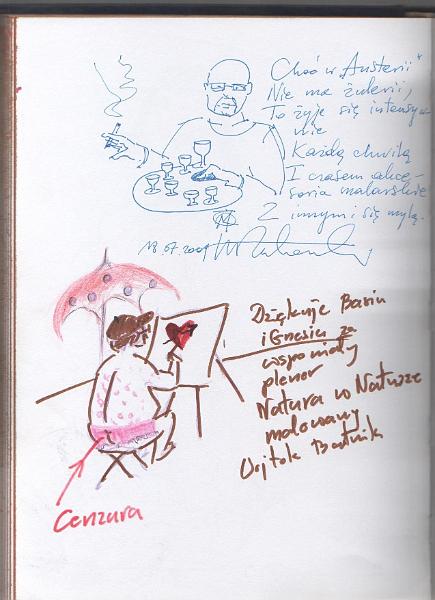 Choć w „Austerii"
Nie ma żulerii,
To żyje się intensyw
nie
Każdą chwilą
I czasem akce-
soria malarskie
Z innymi się mylą.
18.07.2009
Dziękuję Basiu
i Gnesiu za
wspaniały
plener
Natura w Naturze
malowany
Wojtek Bartnik
Cenzura